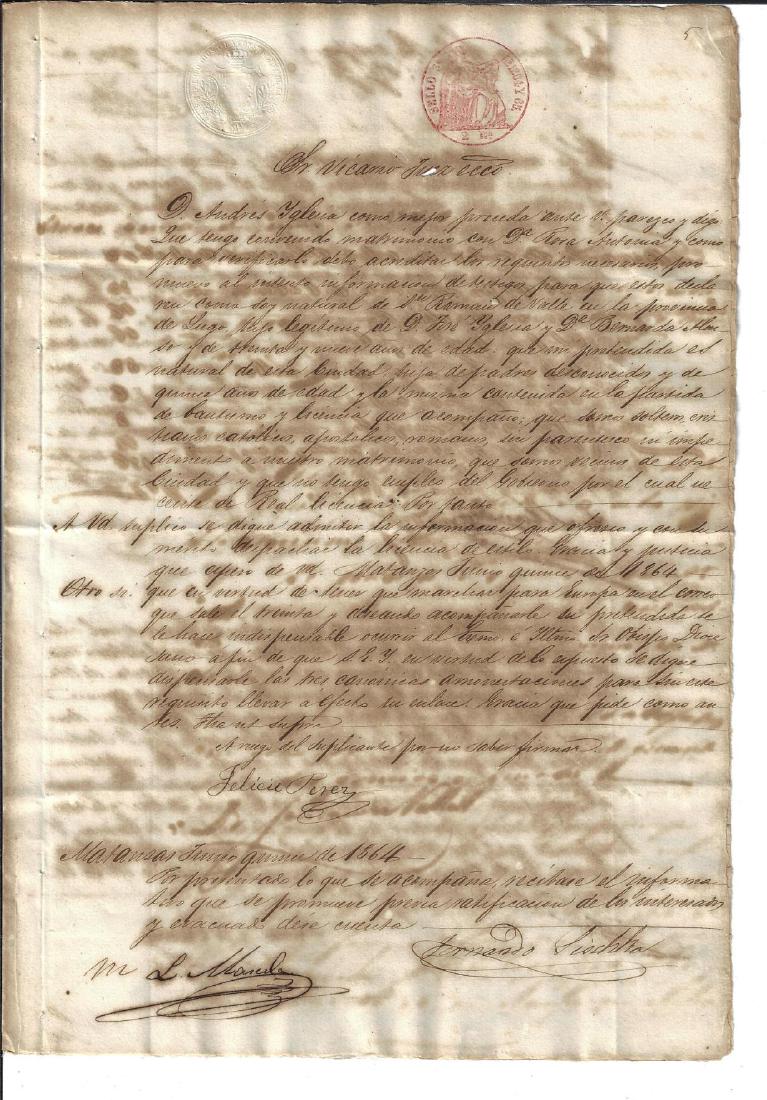 5
SELLO
Sr Vicario Juez ecco.
D. Andrés Iglesia como mejor proceda ante V. parezco y digo
Que tengo convenido matrimonio con Da. Rosa Antonia y como
para verificarlo debo acreditar los requisitos necesarios, pro-
muevo al intento informacion de testigos para que estos decla
ren como soy natural de Sn. Roman de en la provincia
de Lugo, hijo legitimo de D. José Iglesia y Da. Bernarda
y de treinta y nueve años de edad. que mi pretendida es
natural de esta Ciudad, hija de padres desconocidos y de
quince años de edad y la misma contenida en la partida
de bautismo y licencia que acompaño; que somos solteros, cris
tianos católicos, apostolicos, romanos, sin parentesco ni impe
dimento a nuestro matrimonio, que somos vecinos de esta
Ciudad y que no tengo empleo del Gobierno por el cual ne
cesite de Real licencia. Por tanto
A Vd. suplico se digne admitir la informacion que ofresco y con su
merito despachar la licencia de estilo. Gracia y justicia
que espero de Vd. Matanzas Junio quince de 1864
Otro si. que en virtud de tener que marchar para Europa en el correo
que sale el treinta y deseando acompañarle su pretendida se
le hace indispensable ocurrir al Exmo. e Iltmo. Sr. Obispo Dioce
sano a fin de que S.E.I. en virtud de lo espuesto se digne
dispensarle las tres canónicas amonestaciones para sin este
requisito llevar a efecto su enlace. Gracia que pide como an-
tes. Fha ut supra
A ruego del suplicante por no saber firmar.
Felicie Perez
Matanzas Junio quince de 1864
Por presentado lo que se acompaña, recibase el informa-
tivo que se promueve previa ratificacion de los interesados
y evacuado dese cuenta
Fernando